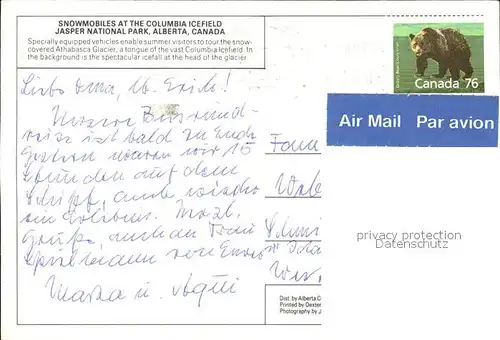 SNOWMOBILES AT THE COLUMBIA ICEFIELD
JASPER NATIONAL PARK, ALBERTA, CANADA
Specially equipped vehicles enable summer visitors to tour the snow-
covered Athabasca Glacier, a tongue of the vast Columbia Icefield. In
the background is the spectacular icefall at the head of the glacier
Canada 76
Air Mail Par avion
Liebe Oma, lb. Erich!
Unsere Rund-
reise ist bald zu Ende
Gestern waren wir 15
Stunden auf dem
Schiff, auch wieder
ein Erlebnis. Herzl.
Grüße, auch an Frau
von
u.
Fam
privacy protection
Datenschutz
Dist. by Alberta C
Printed by Dexter
Photography by J